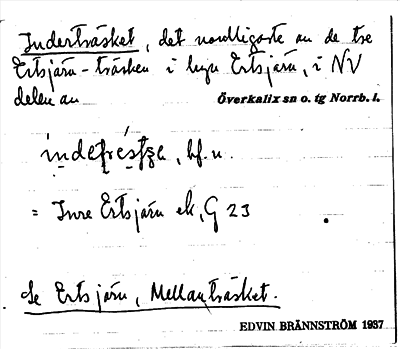 Inderträsket, det nordligaste av de tre
Ertsjärv-träsken i byn Ertsjärv, i NV
delen av Överkalix sn o. tg Norrb. l.
bf. u.
= Inre Ertsjärv ek, G 23
Se Ertsjärv, Mellanträsket.
EDVIN BRÄNNSTRÖM 1937